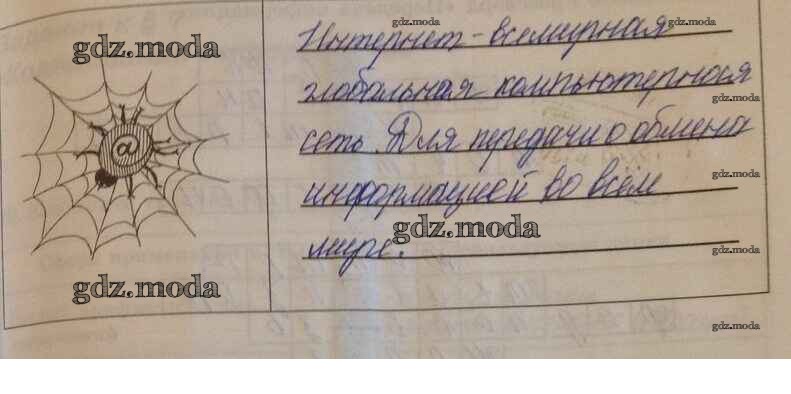 gdz.moda
gdz.moda
gdz.moda
Интернет - всемирная
глобальная компьютерная
gdz.moda
сеть. Для передачи о обмена
@
gdz.moda
информацией во всём
gdz.moda
мире.
gdz.moda
gdz.moda
gdz.moda